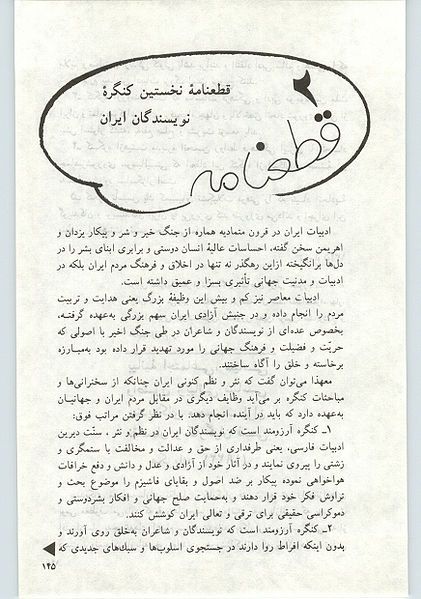 ۲
قطعنامهٔ نخستین کنگرهٔ
نویسندگان ایران
قطعنامه
ادبیات ایران در قرون متمادیه هماره از جنگ خیر و شر و پیکار یزدان و
اهریمن سخن گفته، احساسات عالیهٔ انسان دوستی و برابری ابنای بشر را در
دل‌ها برانگیخته ازاین رهگذر نه تنها در اخلاق و فرهنگ مردم ایران بلکه در
ادبیات و مدنیت جهانی تأثیری بسزا و عمیق داشته است.
ادبیات معاصر نیز کم و بیش این وظیفهٔ بزرگ یعنی هدایت و تربیت
مردم را انجام داده و در جنبش آزادی ایران سهم بزرگی به‌عهده گرفته،
بخصوص عده‌ای از نویسندگان و شاعران در طی جنگ اخیر با اصولی که
حریّت و فضیلت و فرهنگ جهانی را مورد تهدید قرار داده بود به‌مبارزه
برخاسته و خلق را آگاه ساختند.
معهذا می‌توان گفت که نثر و نظم کنونی ایران چنانکه از سخنرانی‌ها و
مباحثات کنگره بر می‌آید وظایف دیگری در مقابل مردم ایران و جهانیان
به‌عهده دارد که باید در آینده انجام دهد. با در نظر گرفتن مراتب فوق:
۱ـ کنگره آرزومند است که نویسندگان ایران در نظم و نثر ، سنّت دیرین
ادبیات فارسی، یعنی طرفداری از حق و عدالت و مخالفت با ستمگری و
زشتی را پیروی نمایند و در آثار خود از آزادی و عدل و دانش و دفع خرافات
هواخواهی نموده پیکار بر ضد اصول و بقایای فاشیزم را موضوع بحث و
تراوش فکر خود قرار دهند و به‌حمایت صلح جهانی و افکار بشردوستی و
دموکراسی حقیقی برای ترقی و تعالی ایران کوشش کنند.
۲ـ کنگره آرزومند است که نویسندگان و شاعران به‌خلق روی آورند و
بدون اینکه افراط روا دارند در جستجوی اسلوب‌ها و سبک‌های جدیدی که
۱۴۵